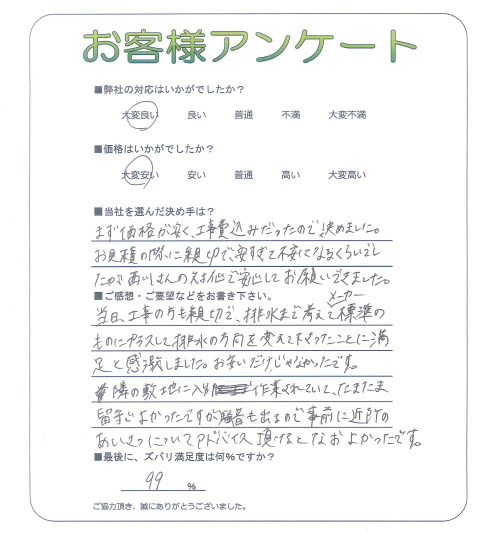 お客様アンケート
■弊社の対応はいかがでしたか？
大変良い 良い 普通 不満 大変不満
■価格はいかがでしたか？
大変安い 安い 普通 高い 大変高い
■当社を選んだ決め手は？
まず価格が安く、工事費込みだったので決めました。
お見積の際に親切で、安すぎて不安になるくらいでし
たが西川さんの対応で安心してお願いできました。
■ご感想・ご要望などをお書き下さい。
メーカー
当日、工事の方も親切で、排水まで考えて標準の
ものにプラスして排水の方向を変えて下さったことに満
足と感激しました。お安いだけじゃなかったです。
隣の敷地に入り 作業されていて、たまたま
留守でよかったですが騒音も出るので事前に近所の
あいさつについてアドバイス頂けるとなおよかったです。
■最後に、ズバリ満足度は何%ですか？
99 %
ご協力頂き、誠にありがとうございました。